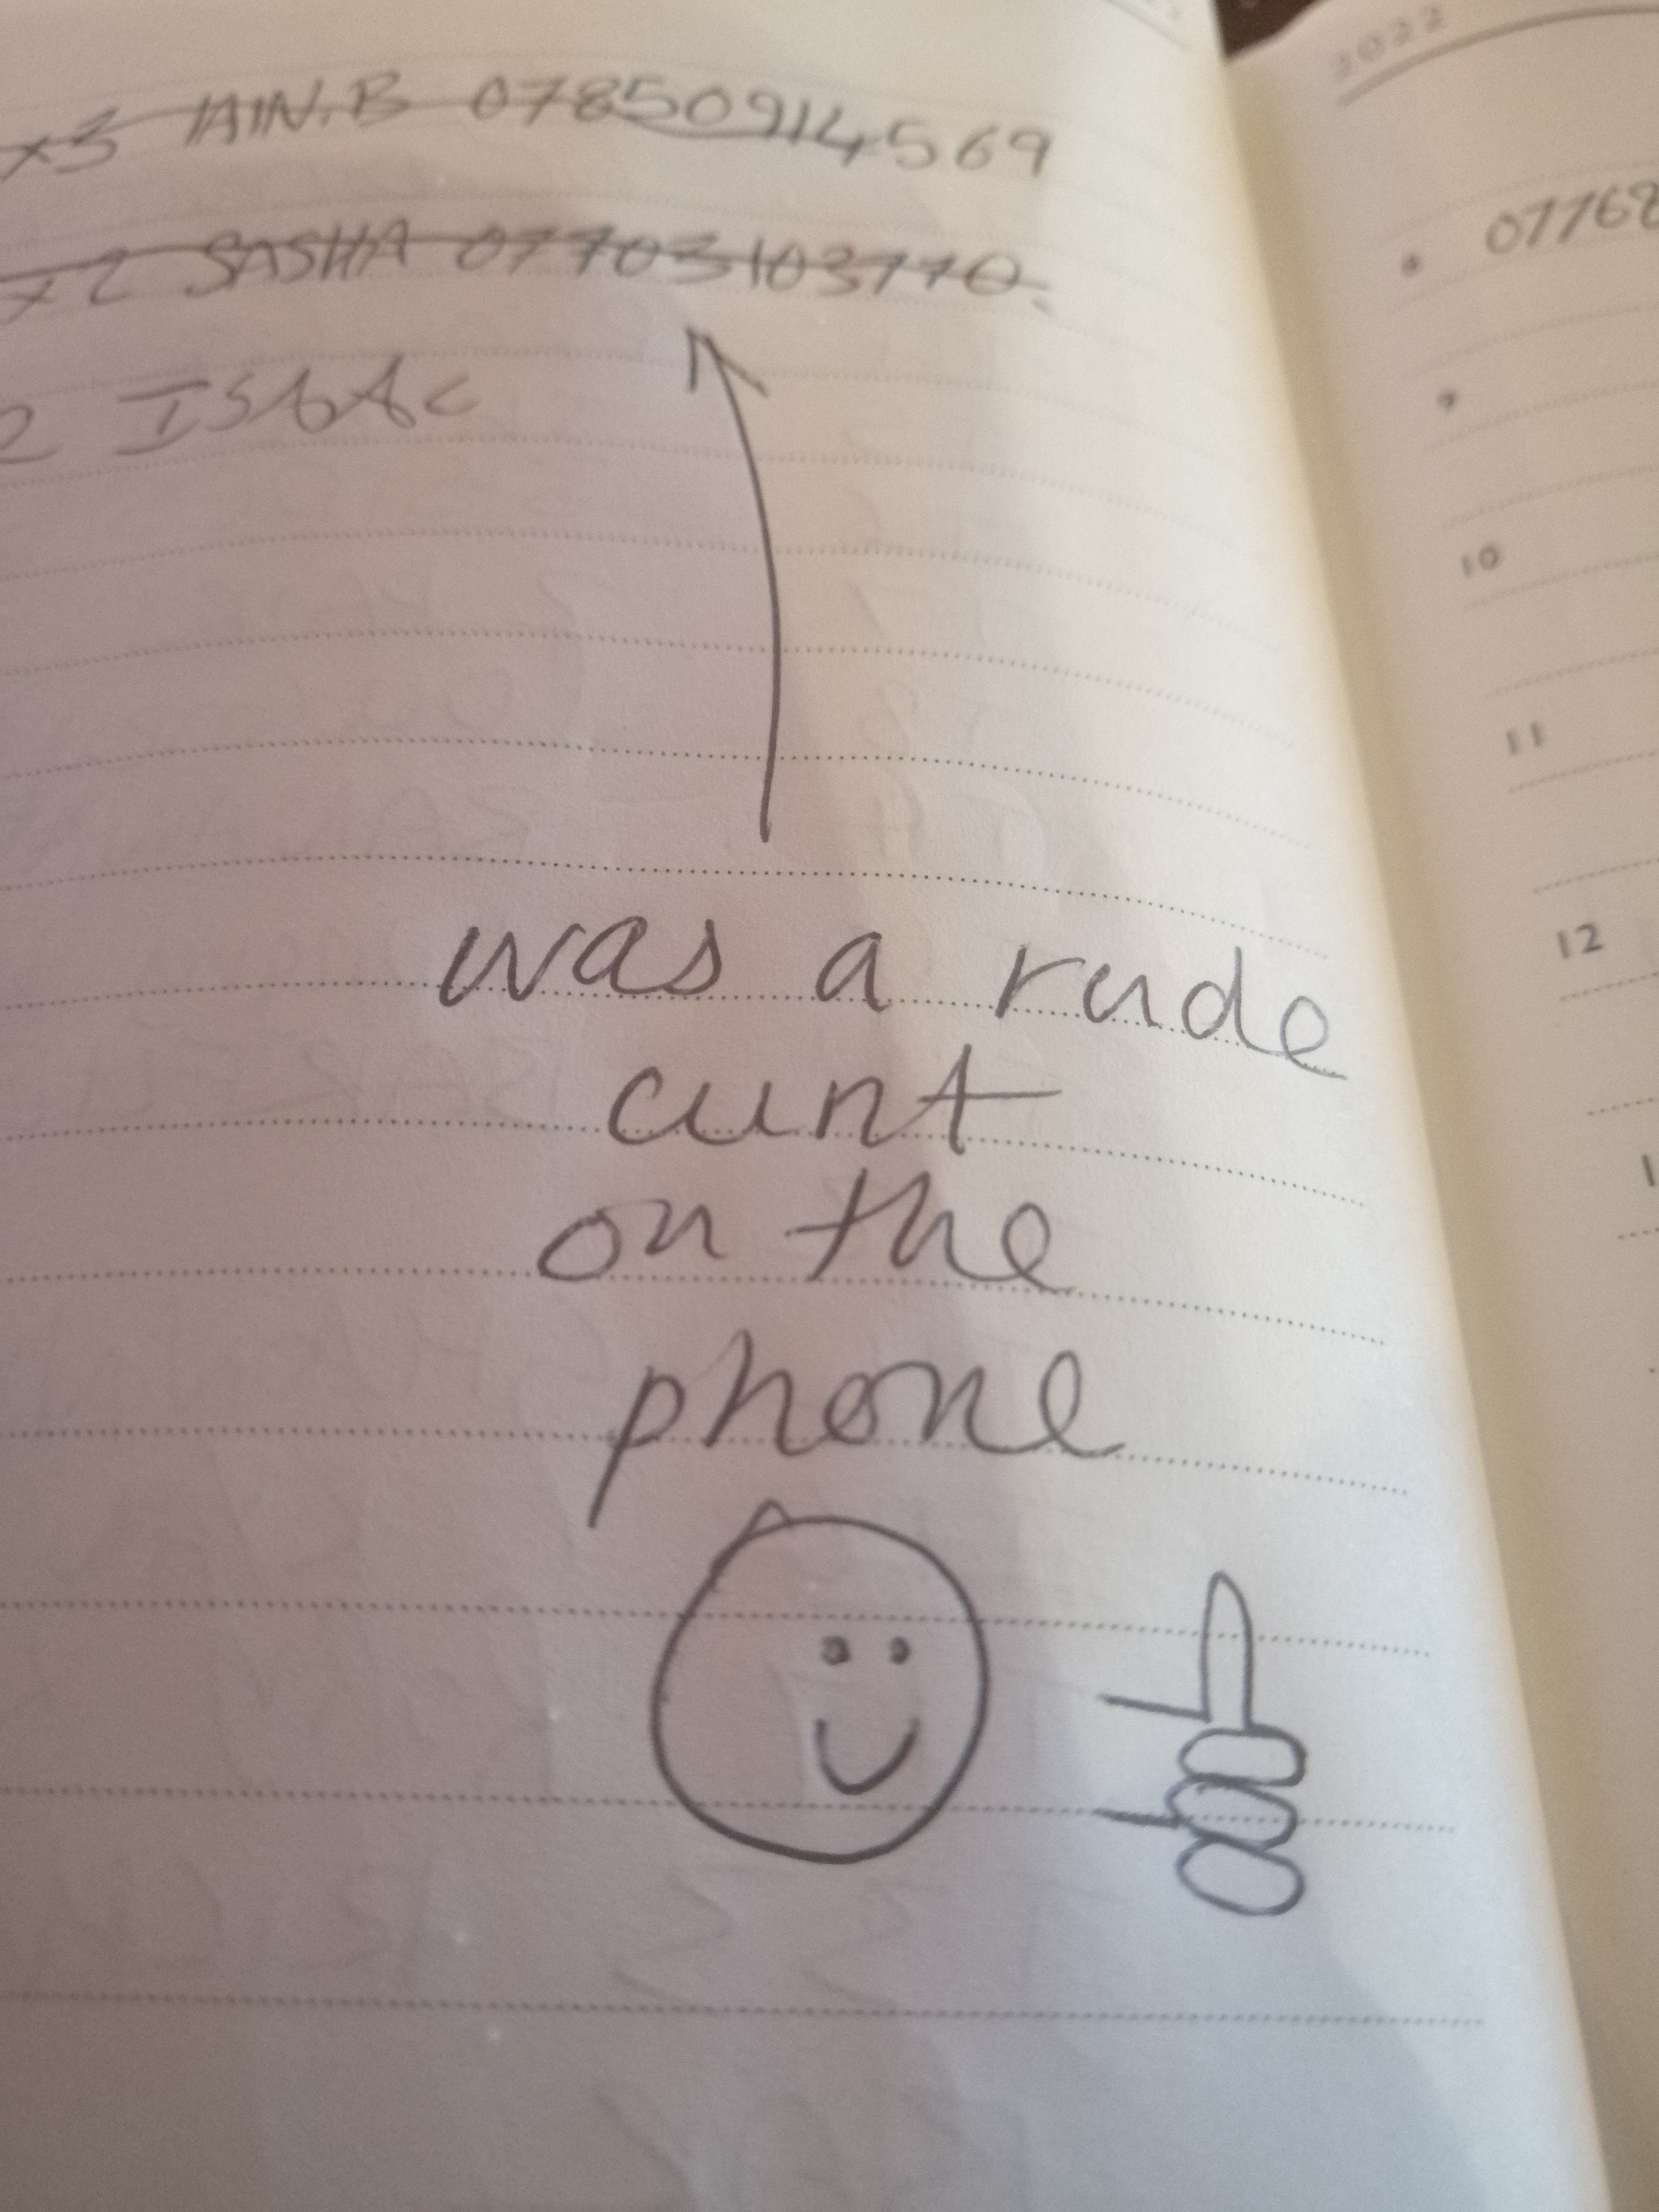 2022
x3 IAIN.B 07850914569
x2 SASHA 07703103770
2 ISAAC
was a rude
cunt
on the
phone
8 07768
9
10
11
12